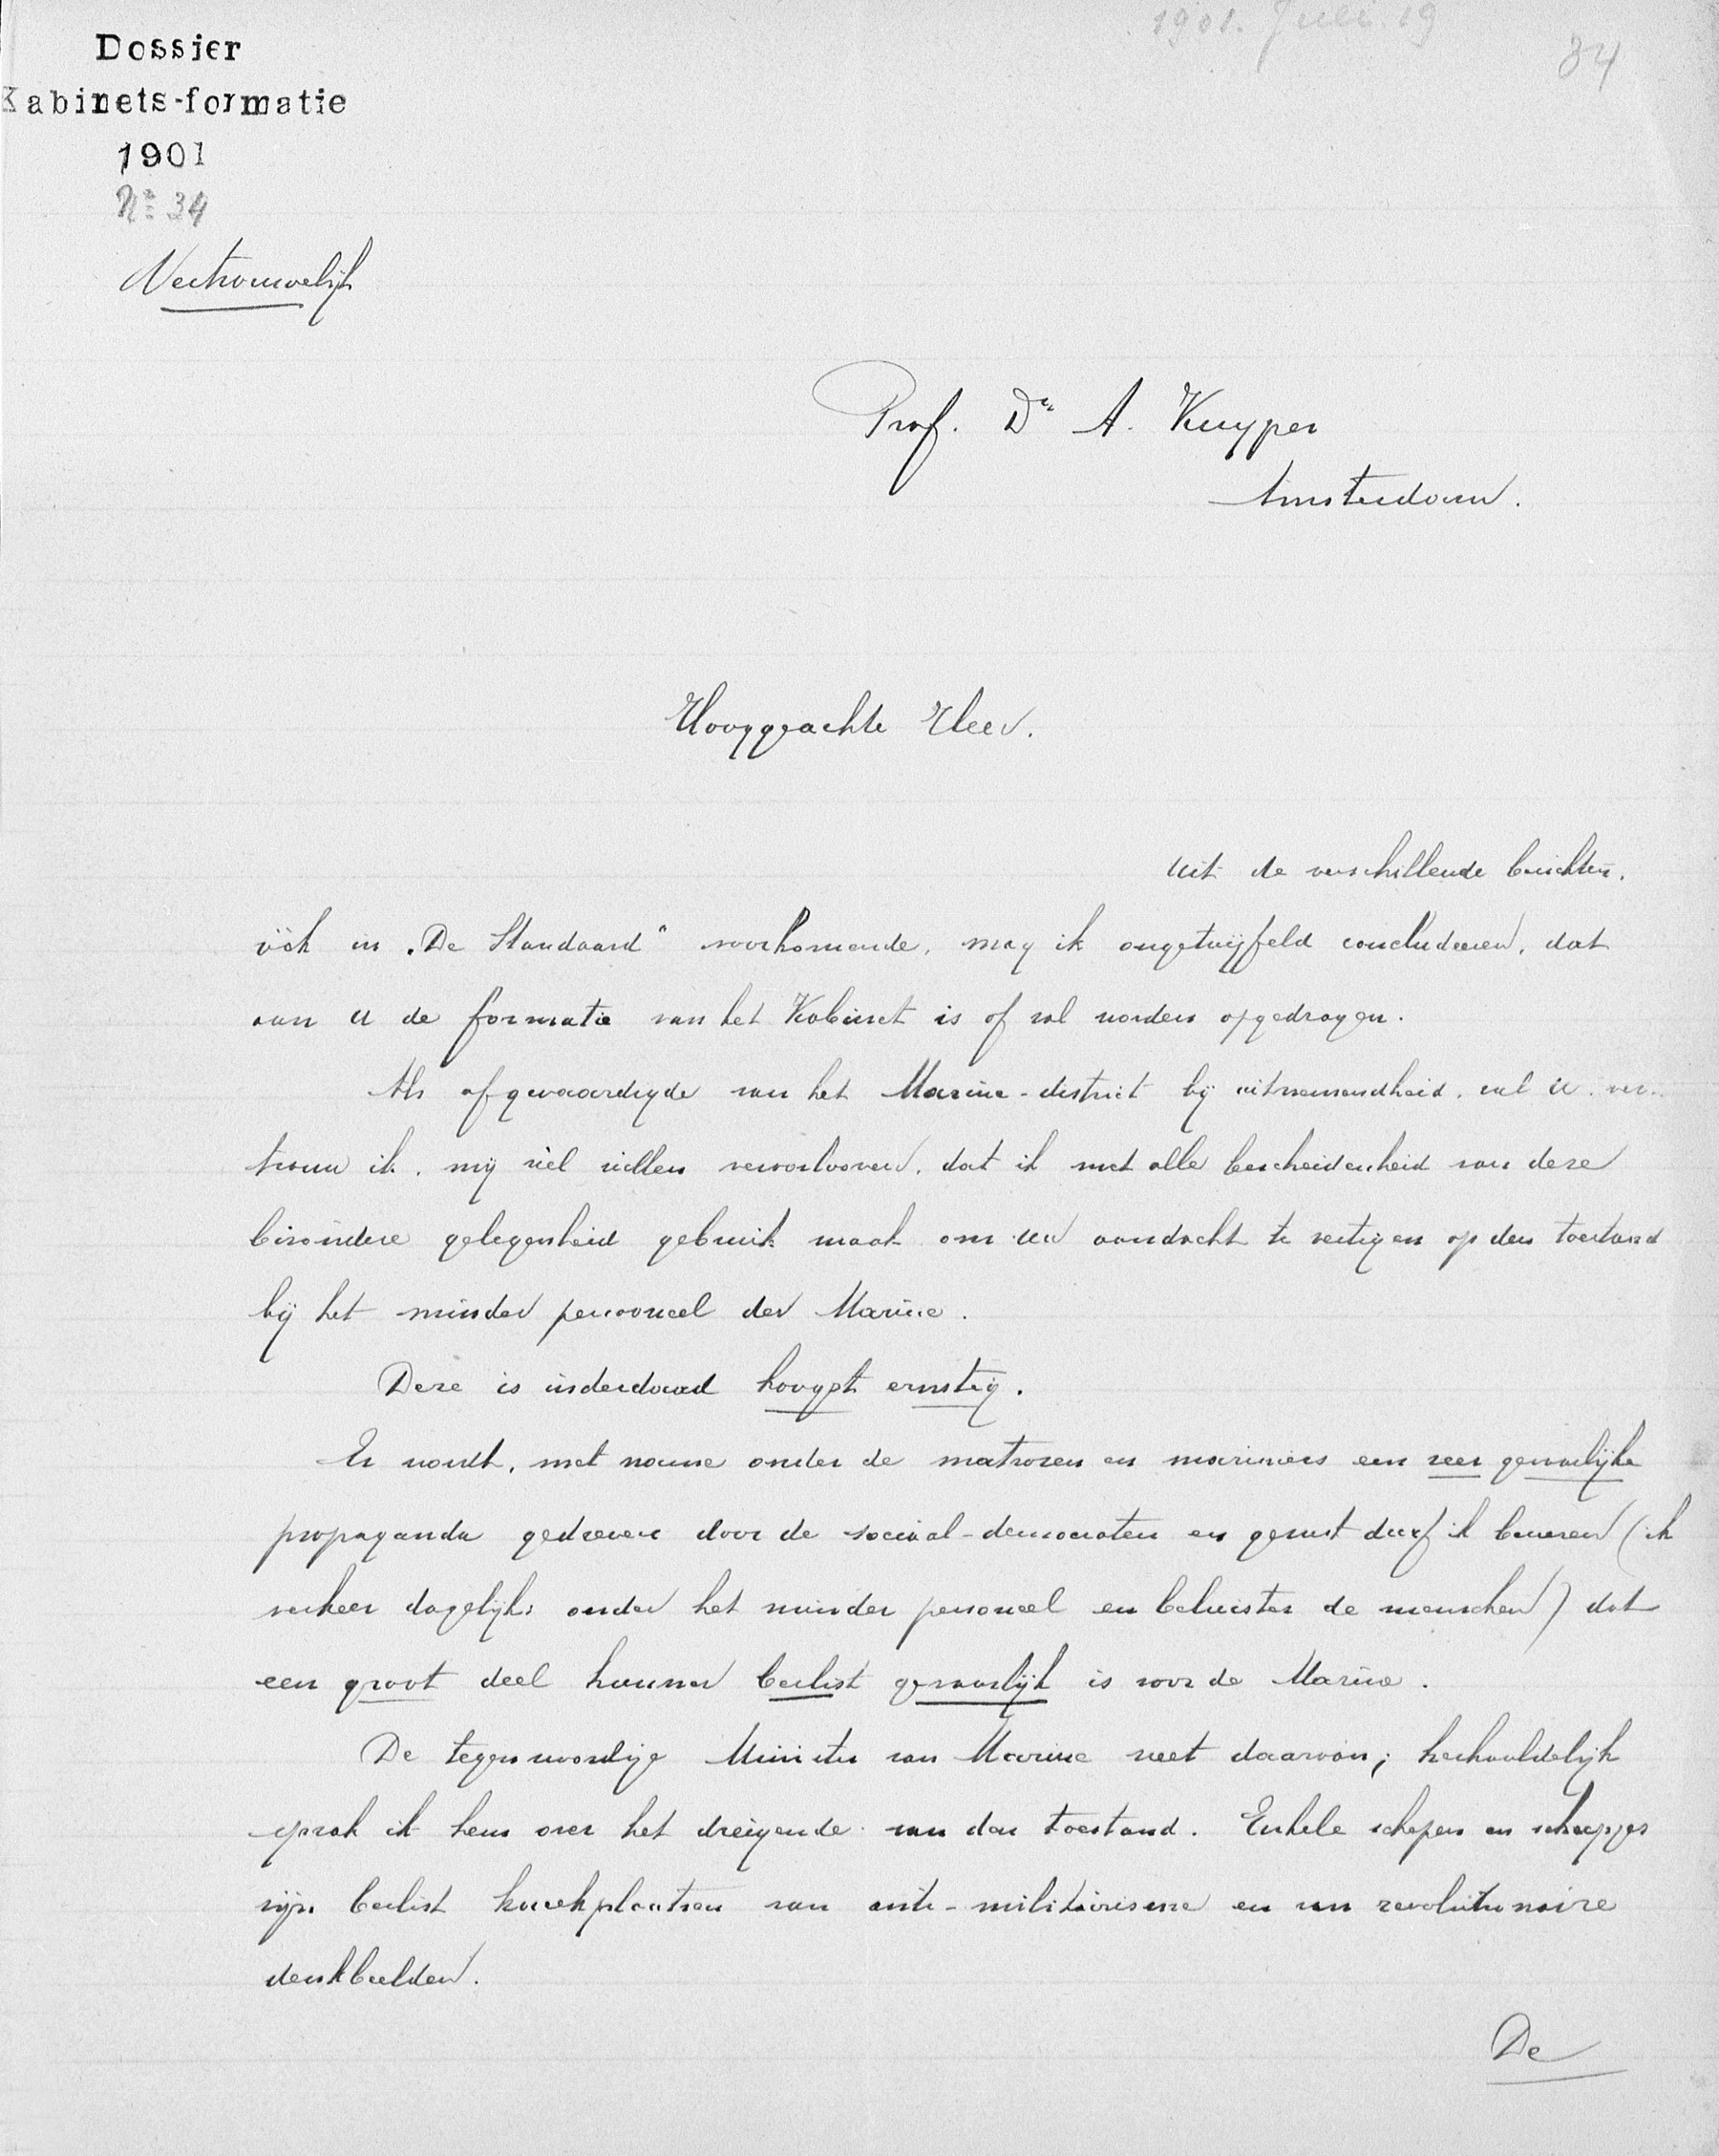 1901. Juli. 19
34
Dossier
Kabinets-formatie
1901
No 34
Vertrouwelijk
Prof. Dr A. Kuyper
Amsterdam.
Hooggeachte Heer.
Uit de verschillende berichten,
óók in „De Standaard" voorkomende, mag ik ongetwijfeld concludeeren, dat
aan U de formatie van het Kabinet is of zal worden opgedragen.
Als afgevaardigde van het Marine-district bij uitnemendheid, zal U, ver-
trouw ik, mij wel willen veroorloven, dat ik met alle bescheidenheid van deze
bizondere gelegenheid gebruik maak om Uw aandacht te vestigen op den toestand
bij het minder personeel der Marine.
Deze is inderdaad hoogst ernstig.
Er wordt, met name onder de matrozen en mariniers een zeer gevaarlijke
propaganda gedreven door de sociaal-democraten en gerust durf ik beweren (ik
verkeer dagelijks onder het minder personeel en beluister de menschen) dat
een groot deel hunner beslist gevaarlijk is voor de Marine.
De tegenwoordige Minister van Marine weet daarvan; herhaaldelijk
sprak ik hem over het dreigende van den toestand. Enkele schepen en scheepjes
zijn beslist kweekplaatsen van anti-militairisme en van revolutionaire
denkbeelden.
De